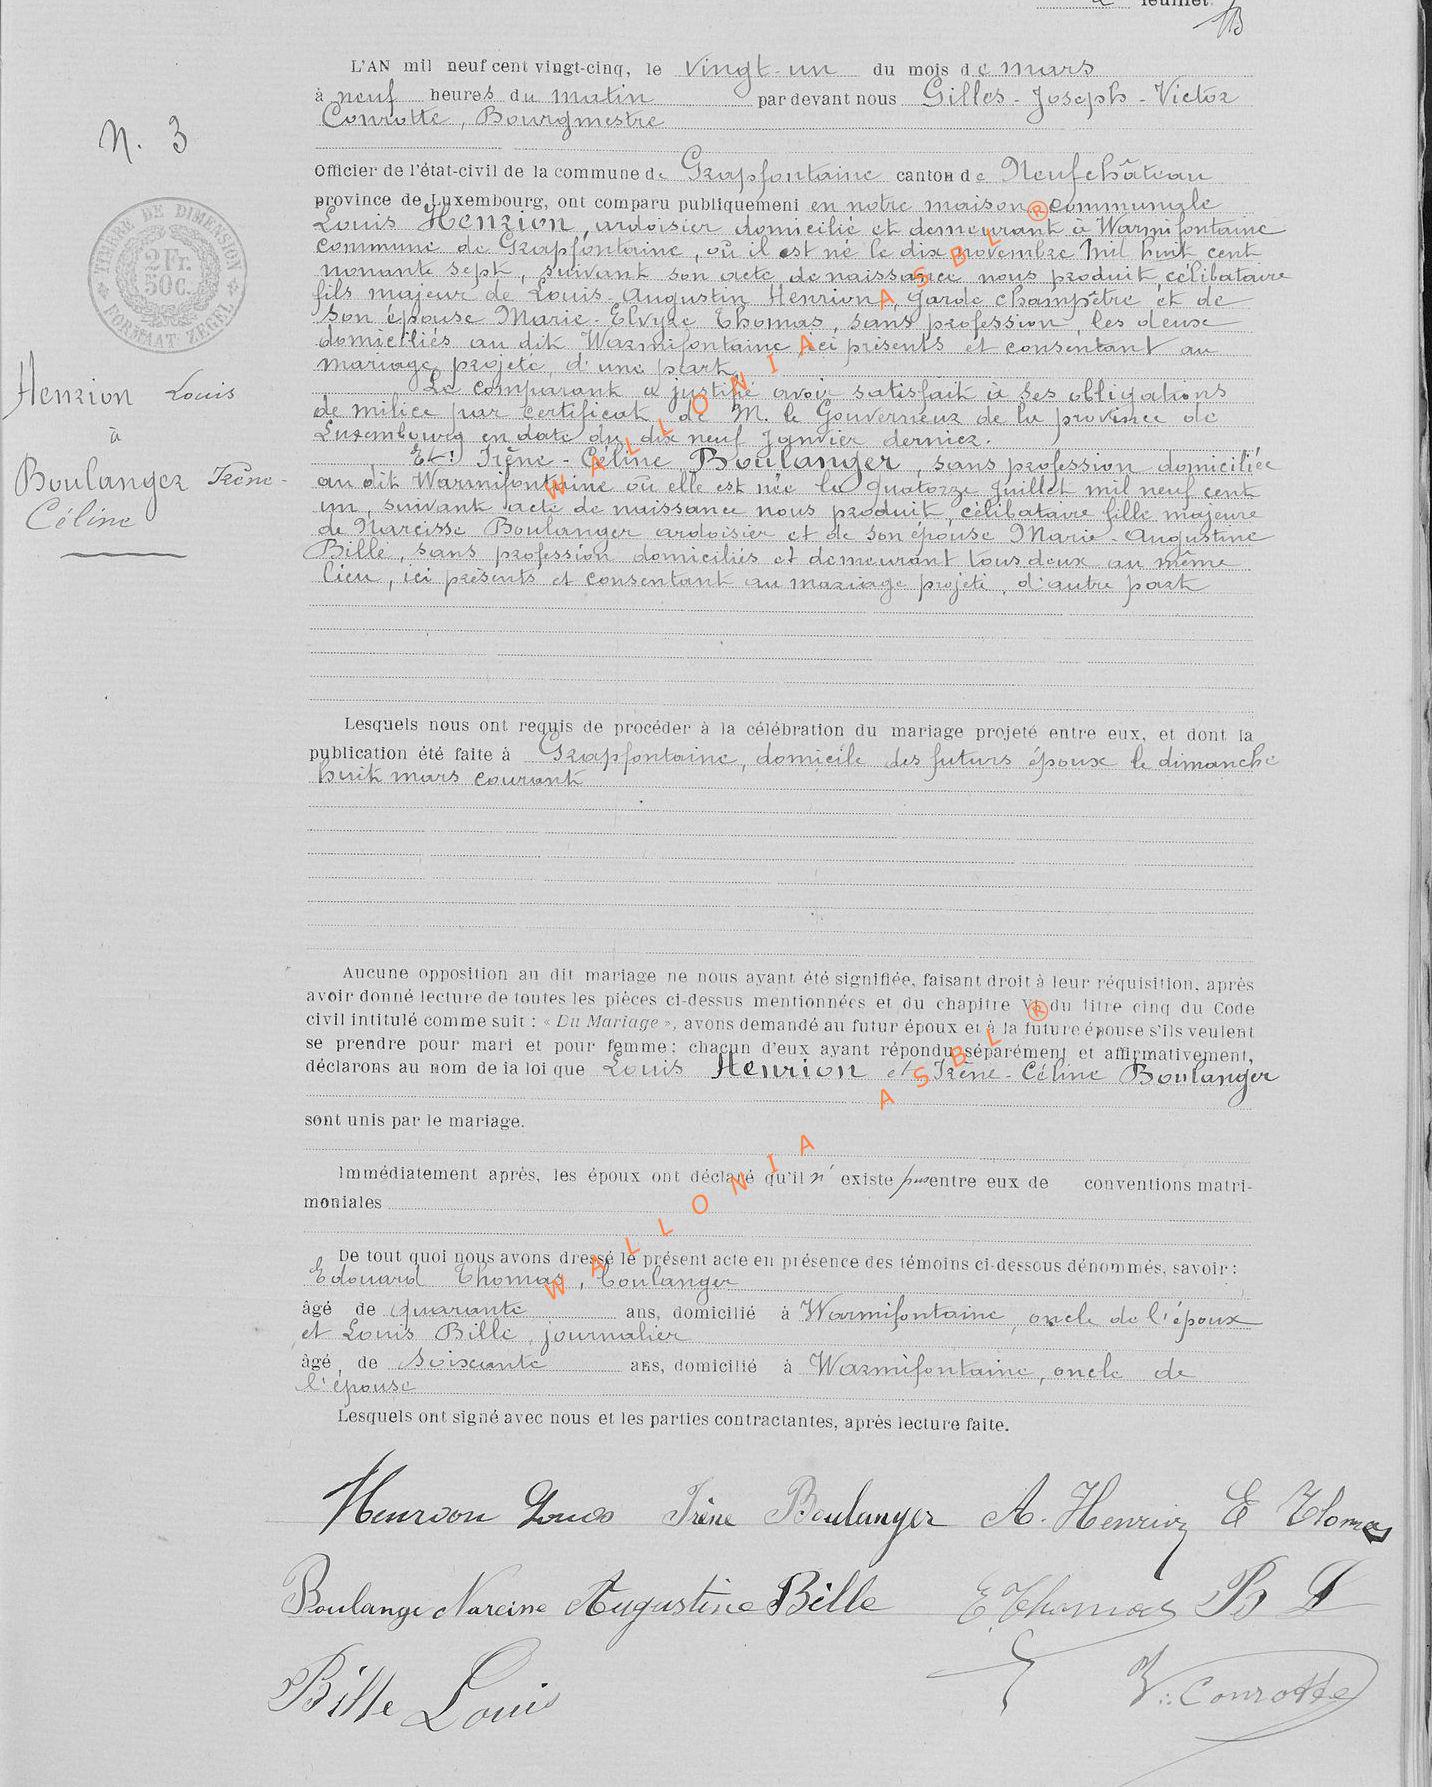 2 feuillet.
L'AN mil neuf cent vingt-cinq, le vingt-un du mois de mars
à neuf heures du matin par devant nous Gilles-Joseph-Victor
Conrotte, Bourgmestre
N. 3
Officier de l'état-civil de la commune de Grapfontaine canton de Neufchâteau
province de Luxembourg, ont comparu publiquement en notre maison communale
Louis Henrion, ardoisier domicilié et demeurant à Warmifontaine
commune de Grapfontaine, où il est né le dix novembre mil huit cent
nonante sept, suivant son acte de naissance nous produit, célibataire
fils majeur de Louis-Augustin Henrion, garde champêtre et de
son épouse Marie-Elvyre Thomas, sans profession, les deux
domiciliés au dit Warmifontaine ici présents et consentant au
mariage projeté, d'une part,
Le comparant a justifié avoir satisfait à ses obligations
de milice par certificat de M. le Gouverneur de la province de
Luxembourg en date du dix neuf Janvier dernier.
Et: Irène-Céline Boulanger, sans profession domiciliée
au dit Warmifontaine où elle est née le quatorze Juillet mil neuf cent
un, suivant acte de naissance nous produit, célibataire fille majeure
de Narcisse Boulanger ardoisier et de son épouse Marie-Augustine
Bille, sans profession domiciliés et demeurant tous deux au même
lieu, ici présents et consentant au mariage projeté, d'autre part
TIMBRE DE DIMENSION
2 Fr.
50 C.
FORMAAT ZEGEL
Henrion Louis
à
Boulanger Irène-
Céline
Lesquels nous ont requis de procéder à la célébration du mariage projeté entre eux, et dont la
publication été faite à Grapfontaine, domicile des futurs époux le dimanche
huit mars courant
Aucune opposition au dit mariage ne nous ayant été signifiée, faisant droit à leur réquisition, après
avoir donné lecture de toutes les pièces ci-dessus mentionnées et du chapitre VI du titre cinq du Code
civil intitulé comme suit : « Du Mariage », avons demandé au futur époux et à la future épouse s'ils veulent
se prendre pour mari et pour femme: chacun d'eux ayant répondu séparément et affirmativement,
déclarons au nom de la loi que Louis Henrion et Irène-Céline Boulanger
sont unis par le mariage.
Immédiatement après, les époux ont déclaré qu'il n' existe pas entre eux de conventions matri-
moniales
De tout quoi nous avons dressé le présent acte en présence des témoins ci-dessous dénommés, savoir :
Edouard Thomas, boulanger
âgé de quarante ans, domicilié à Warmifontaine, oncle de l'époux
et Louis Bille, journalier
âgé, de soixante ans, domicilié à Warmifontaine, oncle de
l'épouse
Lesquels ont signé avec nous et les parties contractantes, après lecture faite.
Henrion Louis Irène Boulanger A. Henrion E Thomas
Boulange Narcine Augustine Bille E. Thomas B L
Bille Louis V. Conrotte
WALLONIA ASBL ®
WALLONIA ASBL ®